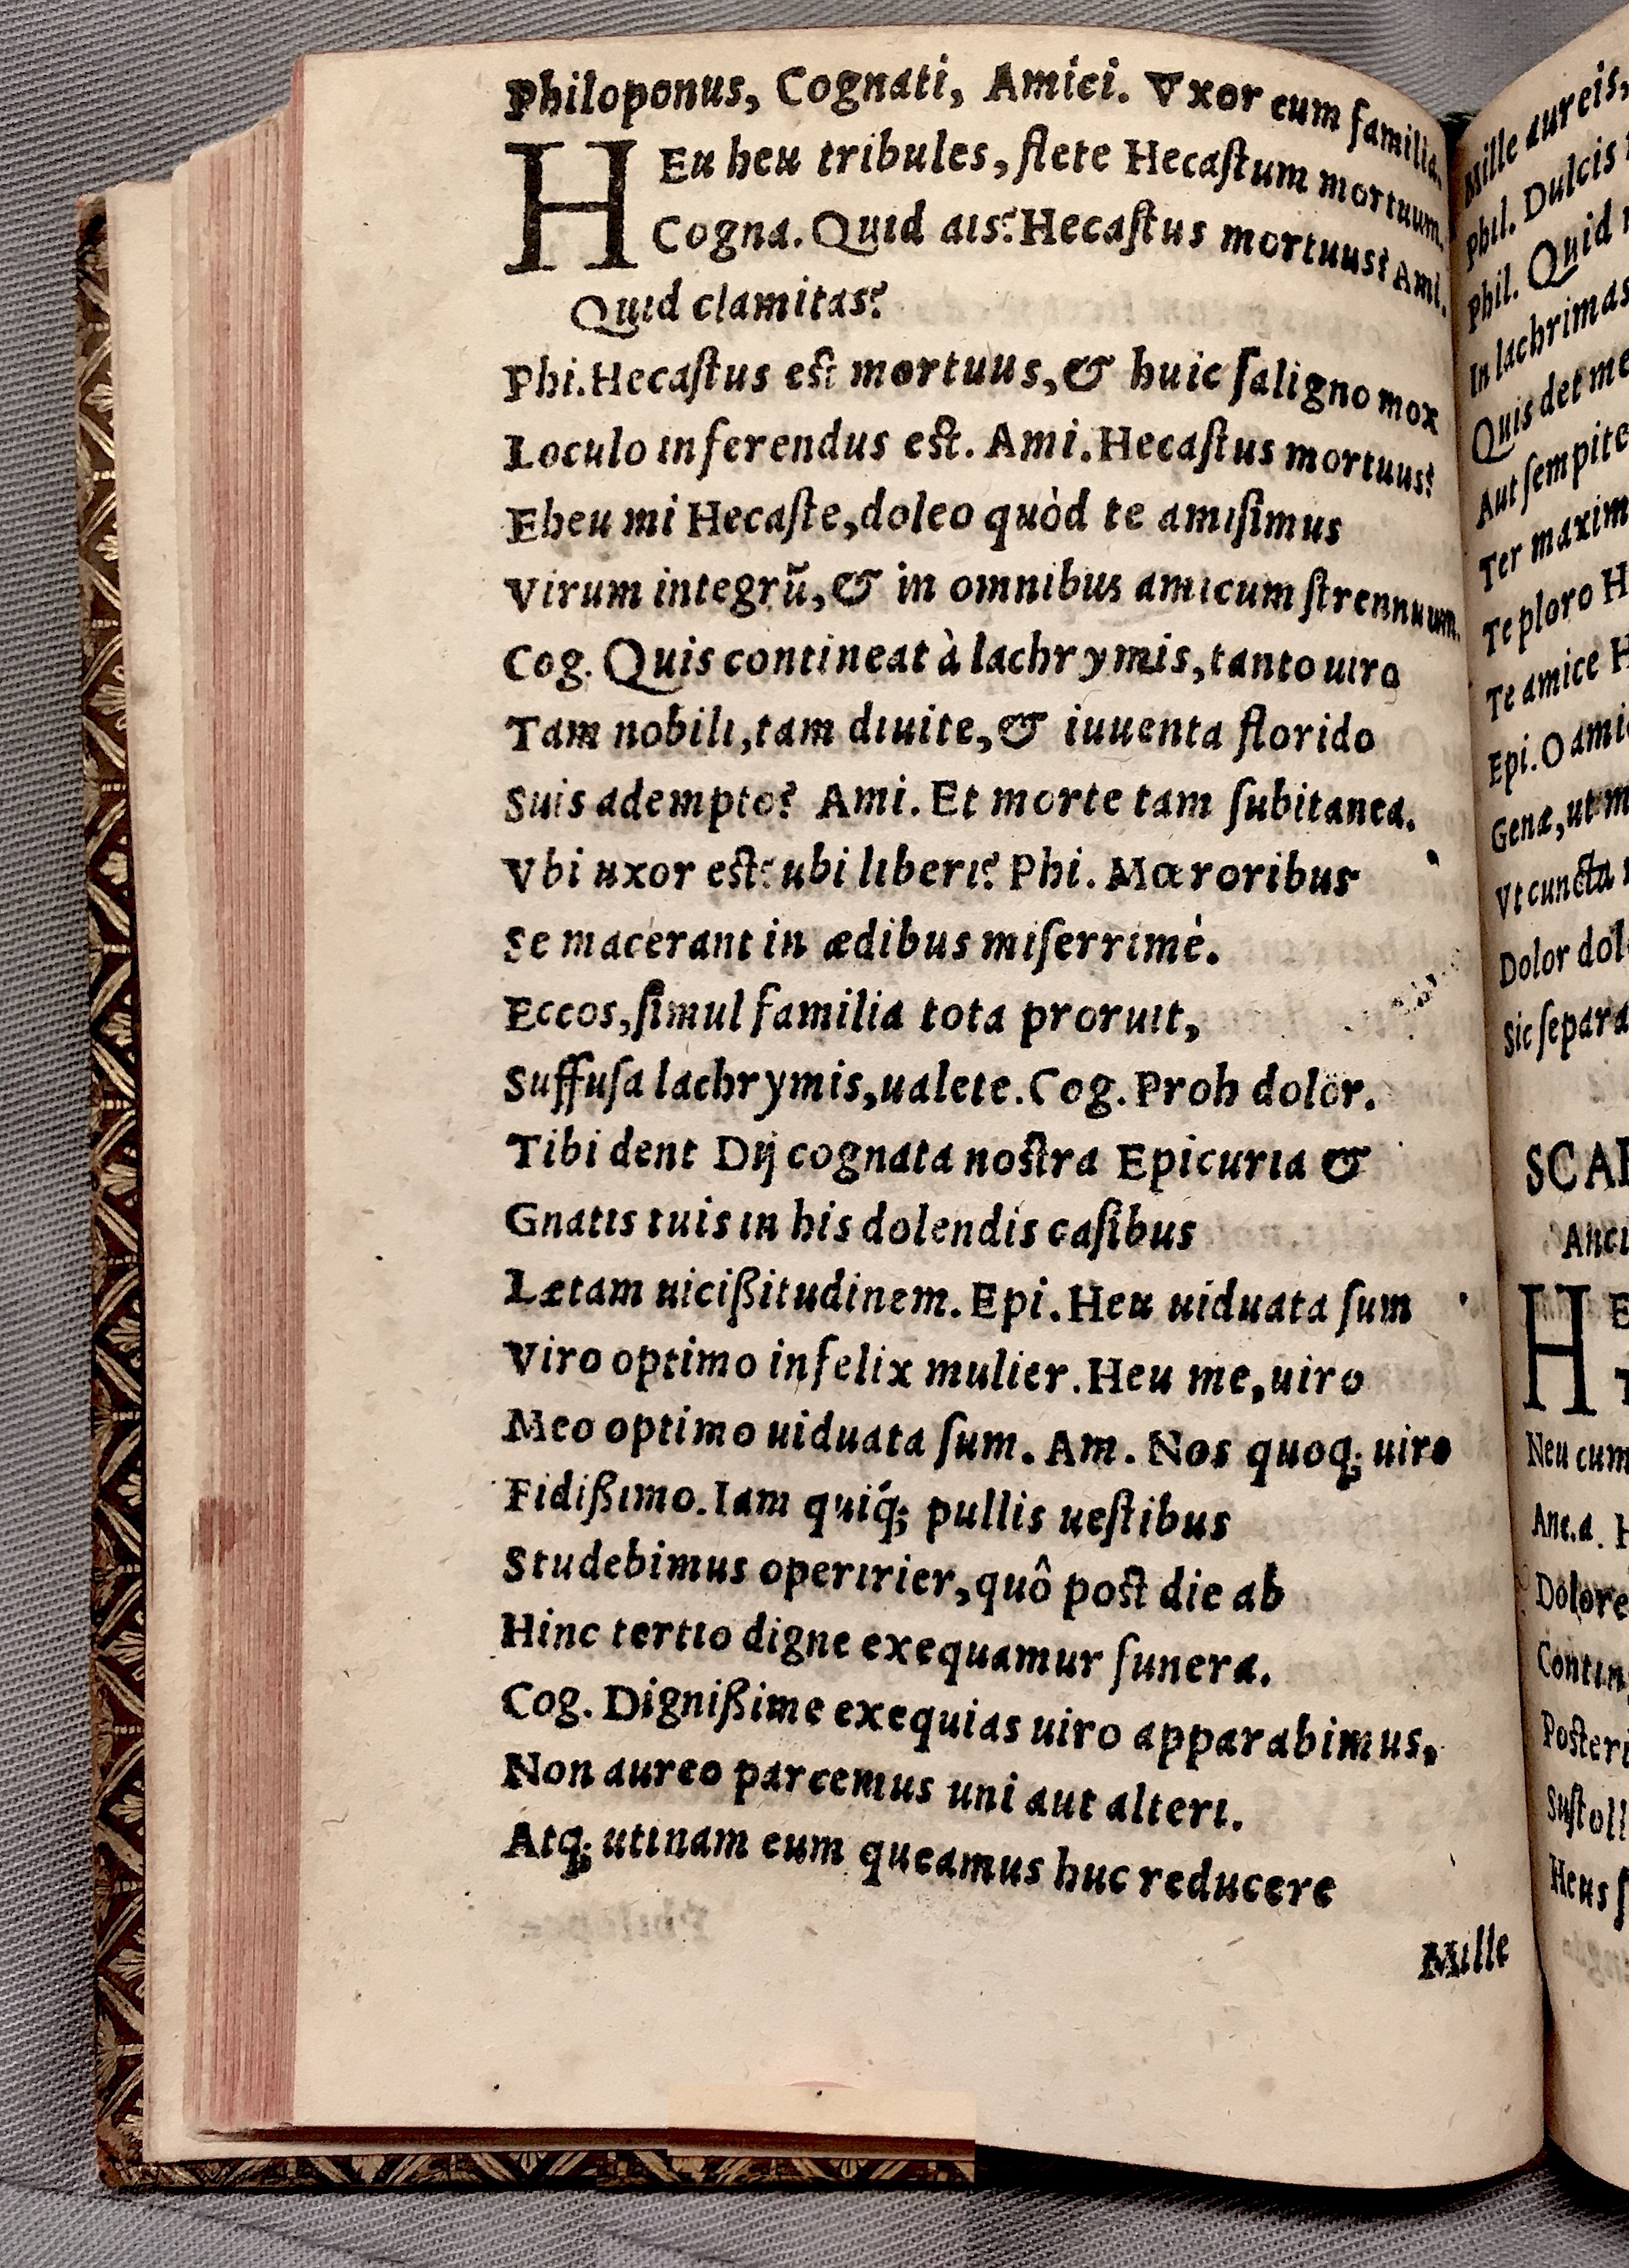 Philoponus, Cognati, Amici. Vxor cum familia.
HEu heu tribules, flete Hecaſtum mortuum.
Cogna. Quid ais? Hecaſtus mortuus? Ami.
Quid clamitas?
Phi. Hecaſtus est mortuus, & huic ſaligno mox
Loculo inferendus est. Ami. Hecaſtus mortuus?
Eheu mi Hecaſte, doleo quòd te amiſimus
Virum integrũ, & in omnibus amicum ſtrennuum.
Cog. Quis contineat à lachrymis, tanto uiro
Tam nobili, tam diuite, & iuuenta florido
Suis adempto? Ami. Et morte tam ſubitanea.
Vbi uxor est? ubi liberi? Phi. Mœroribus
Se macerant in ædibus miſerrimè.
Eccos, ſimul familia tota proruit,
Suffuſa lachrymis, ualete. Cog. Proh dolor.
Tibi dent Dij cognata nostra Epicuria &
Gnatis tuis in his dolendis caſibus
Lætam uicißitudinem. Epi. Heu uiduata ſum
Viro optimo infelix mulier. Heu me, uiro
Meo optimo uiduata ſum. Am. Nos quoq; uiro
Fidißimo. Iam quiq́; pullis ueſtibus
Studebimus operirier, quô post die ab
Hinc tertio digne exequamur funera.
Cog. Dignißime exequias uiro apparabimus,
Non aureo parcemus uni aut alteri.
Atq; utinam eum queamus huc reducere
Mille
Mille aureis,
Phil. Dulcis
Phil. Quid
In lachrimas
Quis det me
Aut ſempite
Ter maxim
Te ploro H
Te amice H
Epi. O amic
Genæ, ut m
Vt cuncta
Dolor dol
Sic ſepara
SCAE
Anci
HE
T
Neu cum
Anc.a. H
Dolore
Contin
Posteri
Suſtoll
Heus ſ